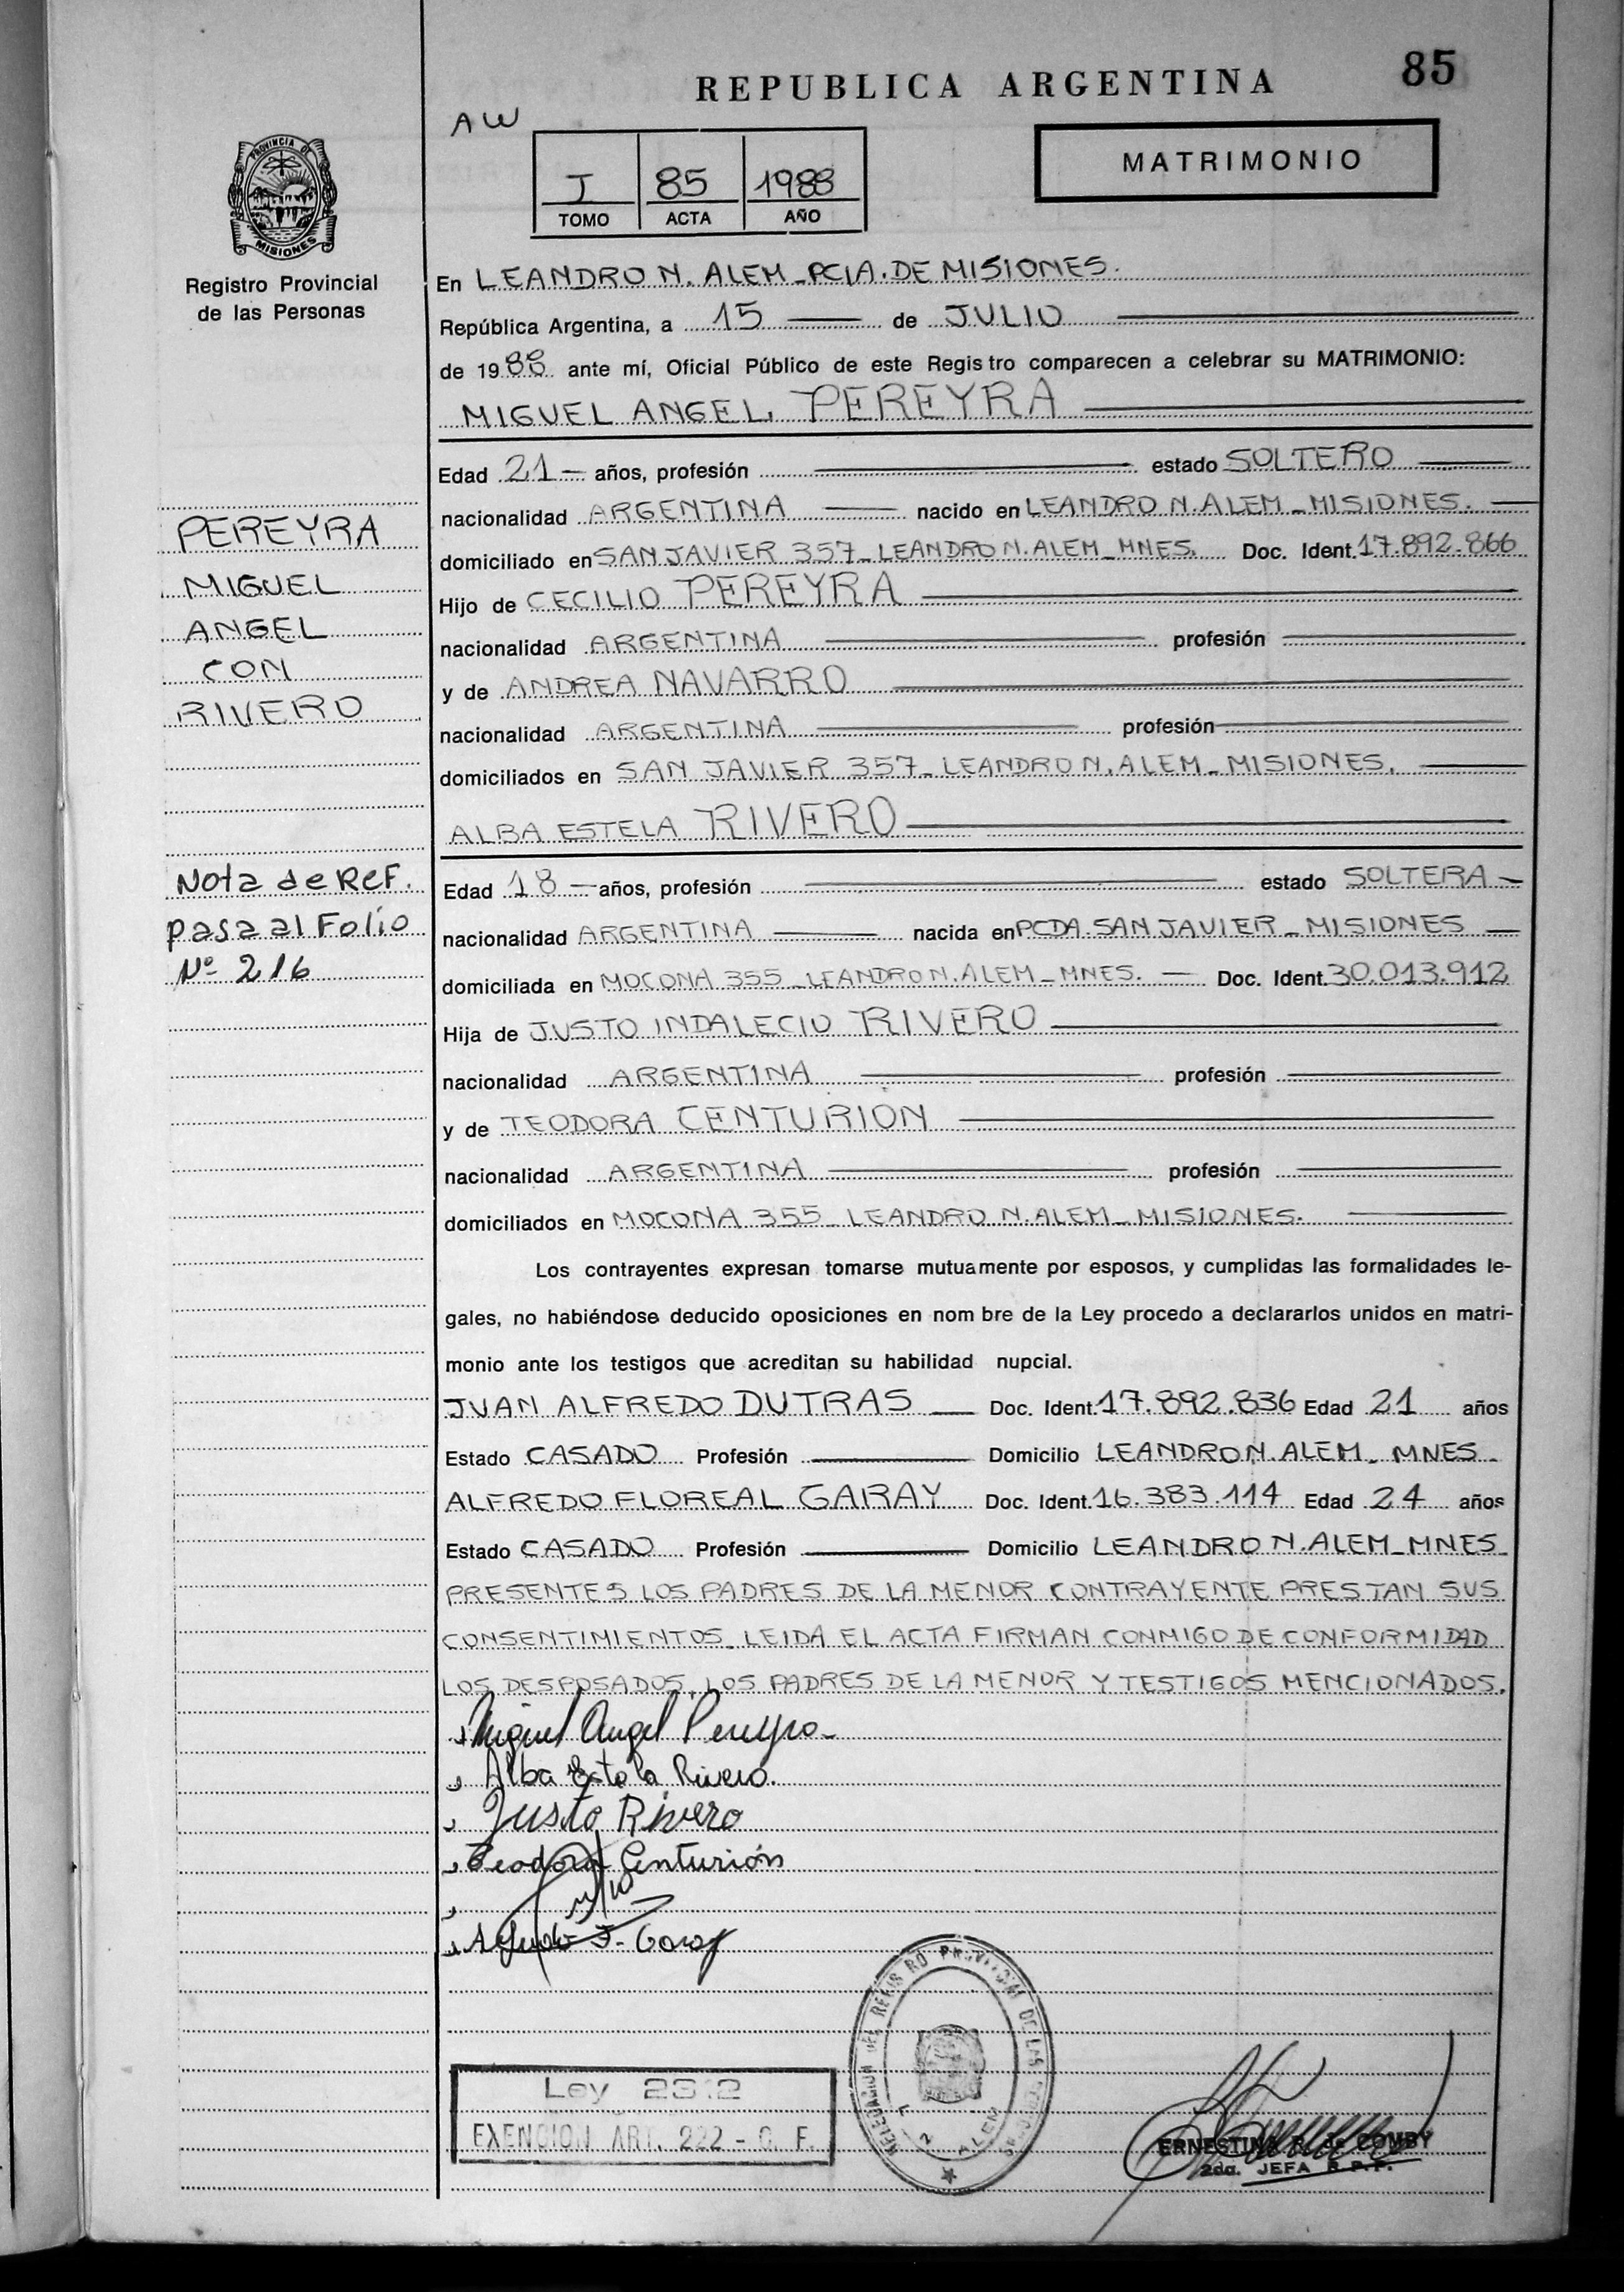 85
REPUBLICA ARGENTINA
AW
MATRIMONIO
I 85 1988
TOMO ACTA AÑO
PROVINCIA DE
MISIONES
Registro Provincial
de las Personas
En LEANDRO N. ALEM_PCIA. DE MISIONES.
República Argentina, a 15 de JULIO
de 1988 ante mí, Oficial Público de este Registro comparecen a celebrar su MATRIMONIO:
MIGUEL ANGEL PEREYRA
Edad 21 años, profesión estado SOLTERO
nacionalidad ARGENTINA nacido en LEANDRO N. ALEM_MISIONES.
domiciliado en SAN JAVIER 357_LEANDRO N. ALEM_MNES. Doc. Ident. 17.892.866
Hijo de CECILIO PEREYRA
nacionalidad ARGENTINA profesión
y de ANDREA NAVARRO
nacionalidad ARGENTINA profesión
domiciliados en SAN JAVIER 357_LEANDRO N. ALEM_MISIONES.
ALBA ESTELA RIVERO
PEREYRA
MIGUEL
ANGEL
CON
RIVERO
Nota de Ref.
pasa al Folio
Nº 216
Edad 18 años, profesión estado SOLTERA
nacionalidad ARGENTINA nacida en PCDA. SAN JAVIER_MISIONES
domiciliada en MOCONA 355_LEANDRO N. ALEM_MNES. Doc. Ident. 30.013.912
Hija de JUSTO INDALECIO RIVERO
nacionalidad ARGENTINA profesión
y de TEODORA CENTURION
nacionalidad ARGENTINA profesión
domiciliados en MOCONA 355_LEANDRO N. ALEM_MISIONES.
Los contrayentes expresan tomarse mutuamente por esposos, y cumplidas las formalidades le-
gales, no habiéndose deducido oposiciones en nombre de la Ley procedo a declararlos unidos en matri-
monio ante los testigos que acreditan su habilidad nupcial.
JUAN ALFREDO DUTRAS Doc. Ident. 17.892.836 Edad 21 años
Estado CASADO Profesión Domicilio LEANDRO N. ALEM_MNES_
ALFREDO FLOREAL GARAY Doc. Ident. 16.383.114 Edad 24 años
Estado CASADO Profesión Domicilio LEANDRO N. ALEM_MNES_
PRESENTES LOS PADRES DE LA MENOR CONTRAYENTE PRESTAN SUS
CONSENTIMIENTOS_LEIDA EL ACTA FIRMAN CONMIGO DE CONFORMIDAD
LOS DESPOSADOS, LOS PADRES DE LA MENOR Y TESTIGOS MENCIONADOS.
Miguel Angel Pereyra
Alba Estela Rivero.
Justo Rivero
Teodora Centurión
Alfredo F. Garay
DELEGACION DEL REGISTRO PROVINCIAL DE LAS
L. N. ALEM
Ley 2312
EXENCION ART. 222 - C. F.
ERNESTINA R. de COMBY
2da. JEFA R.P.P.